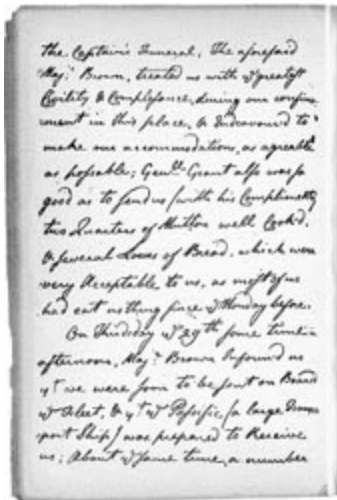 the Captain's Funeral; The aforesaid
Maj.r Brown, treated us with ye greatest
Civility & Complesance, during our confine
ment in this place, & Endeavour'd to
make our accommodations, as agreable
as possable; Gen.ll Grant also was so
good as to send us (with his Compliments)
two Quarters of Mutton well Cook'd,
& several Loves of Bread, which were
very Acceptable to us, as most of us
had eat nothing since ye Monday before.
On Thursday ye 29th some time in
afternoon, Maj.r Brown Inform'd us
yt we were soon to be sent on Board
ye Fleet, & yt ye Passific, (a large Trans
port Ship) was prepared to Receive
us; About ye same time, a number